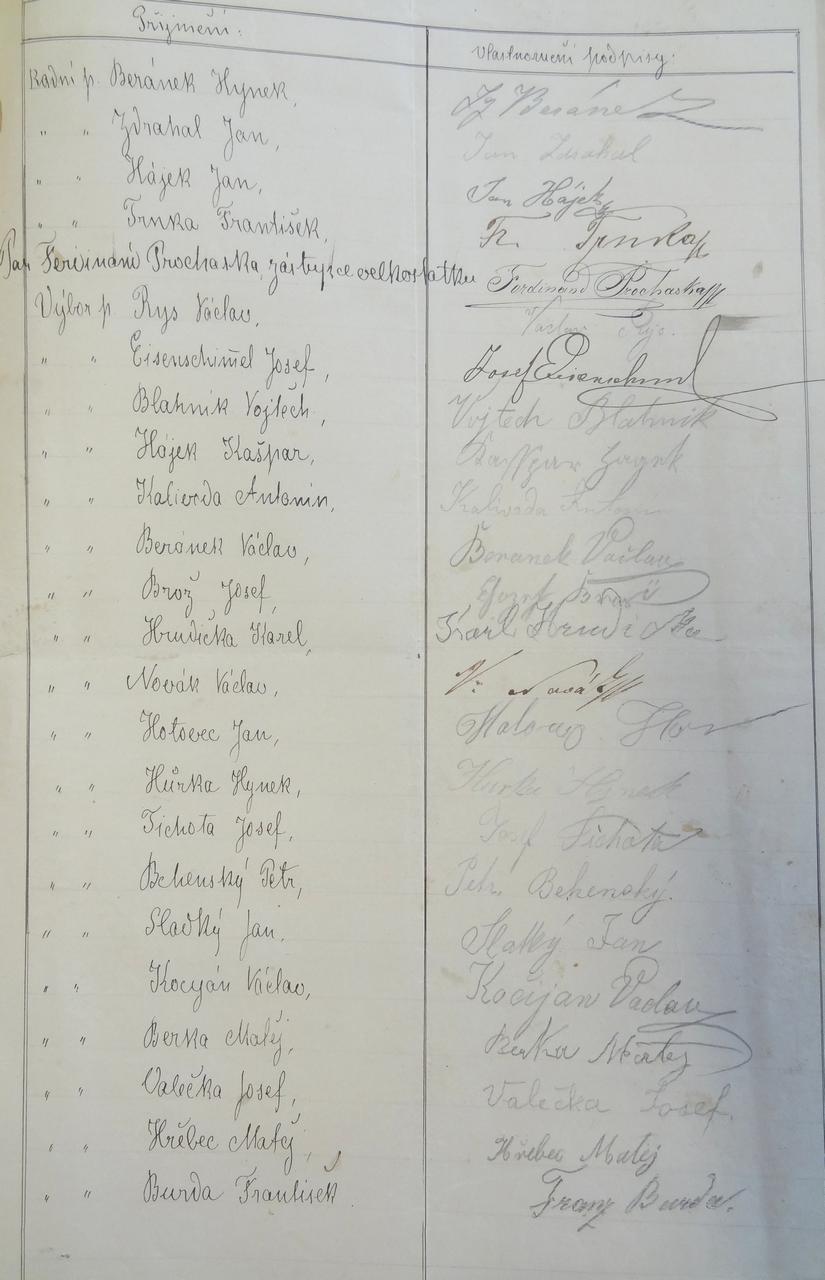 Příjmení: Vlastnoruční podpisy:
Radní p. Beránek Hynek, Ig Beránek
" " Zdrahal Jan, Jan Zdrahal
" " Hájek Jan, Jan Hájek
" " Trnka František, Fr. Trnka
Pan Ferdinand Prochaska, zástupce velkostatku Ferdinand Prochaska
Výbor p. Rys Václav, Václav Rys.
" " Eisenschiml Josef, Josef Eisenschiml
" " Blahník Vojtěch, Vojtech Blahnik
" " Hájek Kašpar, Kasspar
" " Kalivoda Antonín, Kalivoda Antonin
" " Beránek Václav, Beranek Václav
" " Brož Josef,
" " Hrudička Karel, Karl Hrudička
" " Novák Václav, V. Novák
" " Hotovec Jan,
" " Hůrka Hynek, Hurka Hynek
" " Tichota Josef, Josef Tichota
" " Behenský Petr, Petr Behenský.
" " Sladký Jan. Slatký Jan
" " Kocyán Václav, Kocijan Vaclav
" " Berka Matěj, Berka Matěj
" " Valečka Josef, Valečka Josef.
" " Hřebec Matěj, Hřebec Matěj
" " Burda František. Franz Burda.